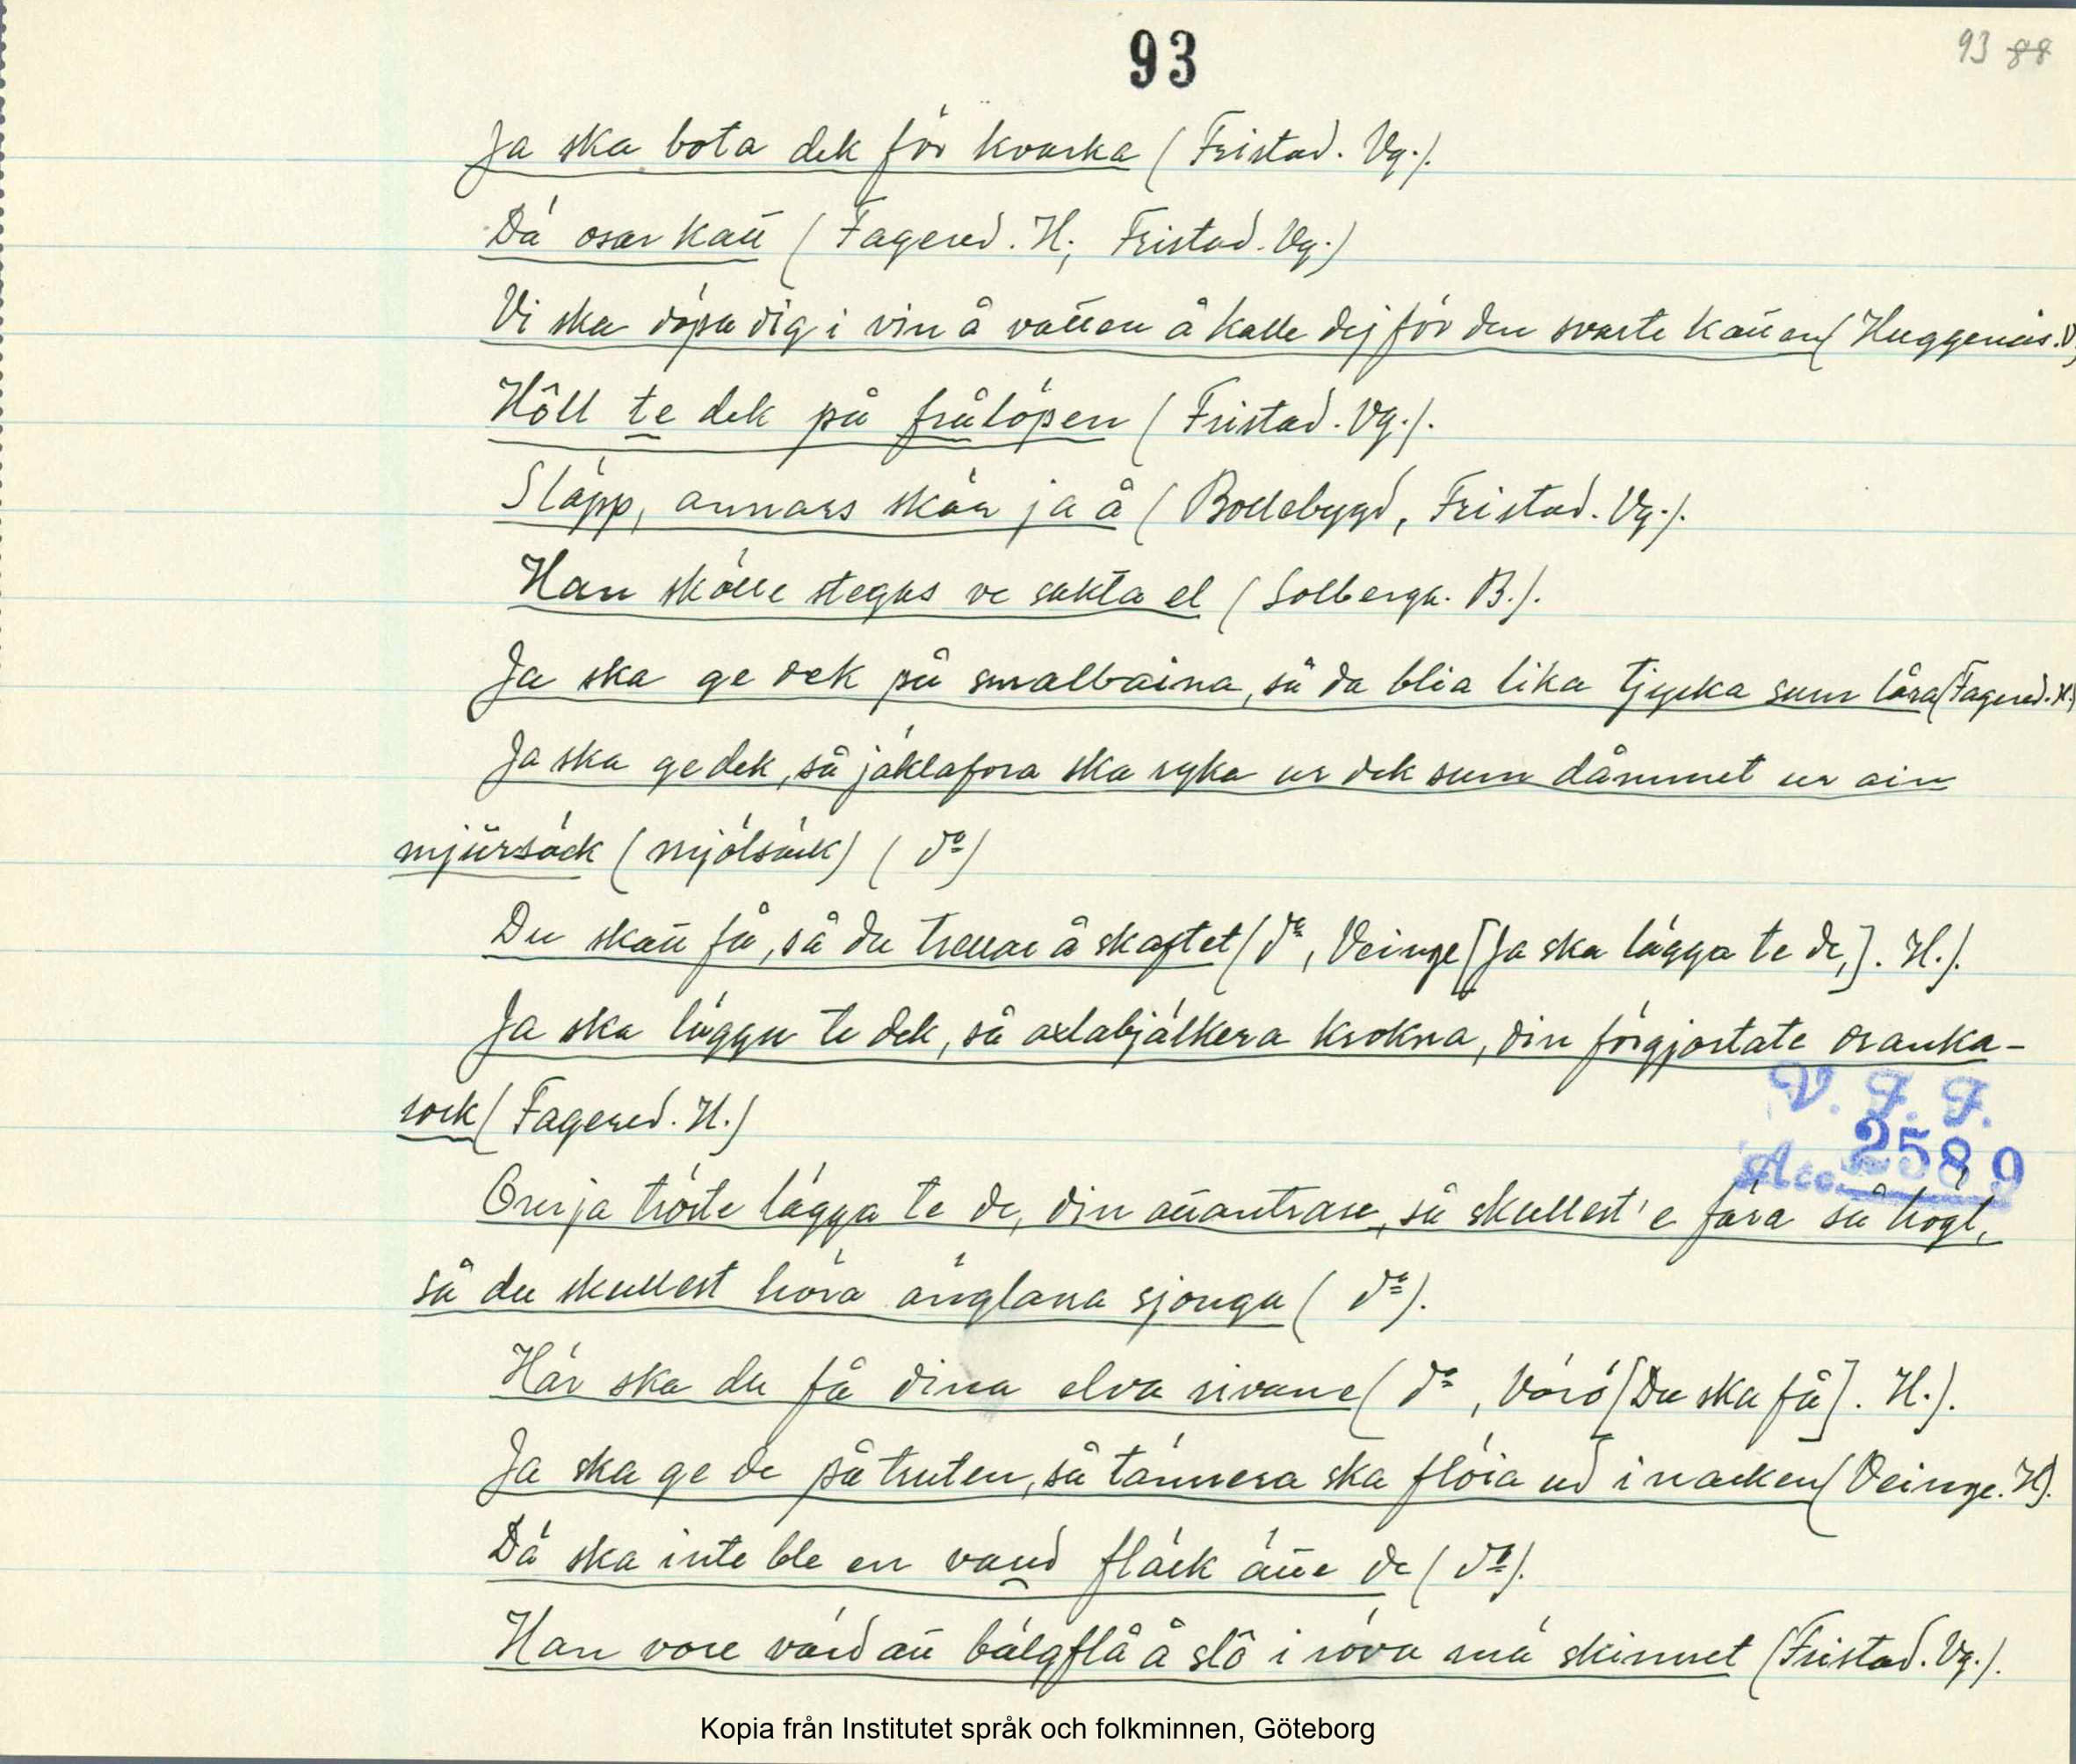 93
93 88
Ja ska bota dek för kvarka (Fristad. Vg.).
Dä osar katt (Fagered. H; Fristad. Vg.)
Vi ska döpa dig i vin å vatten å kalle dej för den svarte katten (Huggenäs. V
Hôll te dek på frålöpen (Fristad. Vg.).
Släpp, annars skär ja å (Bollebygd, Fristad. Vg.).
Han skölle stegas ve sakta el (Solberga. B.).
Ja ska ge dek på smalbaina, så da blia lika tjycka sum låra (Fagered. H.)
Ja ska ge dek, så jäklafora ska ryka ur dek sum dåmmet ur ain
mjürsäck (mjölsäck) (do)
Du skatt få, så du trettar å skaftet (do, Veinge [Ja ska lägga te de,]. H.).
Ja ska läggu te dek, så axlabjälkera krokna, din förgjortate dranka-
sock (Fagered. H.)
Om ja tröste lägga te de, din attantrase, så skullest'e fara så högt,
så du skullest höra änglana sjonga (do).
Här ska du få dina elva rivane (do, Värö [Du ska få]. H.).
Ja ska ge de på truten, så tännera ska flöia ud i nacken (Veinge. H).
Dä ska inte ble en vaud fläck ätte de (do).
Han vore värd att bälgflå å slô i röva mä skinnet (Fristad. Vg.).
V. F. F.
Acc. nr 2589
Kopia från Institutet språk och folkminnen, Göteborg